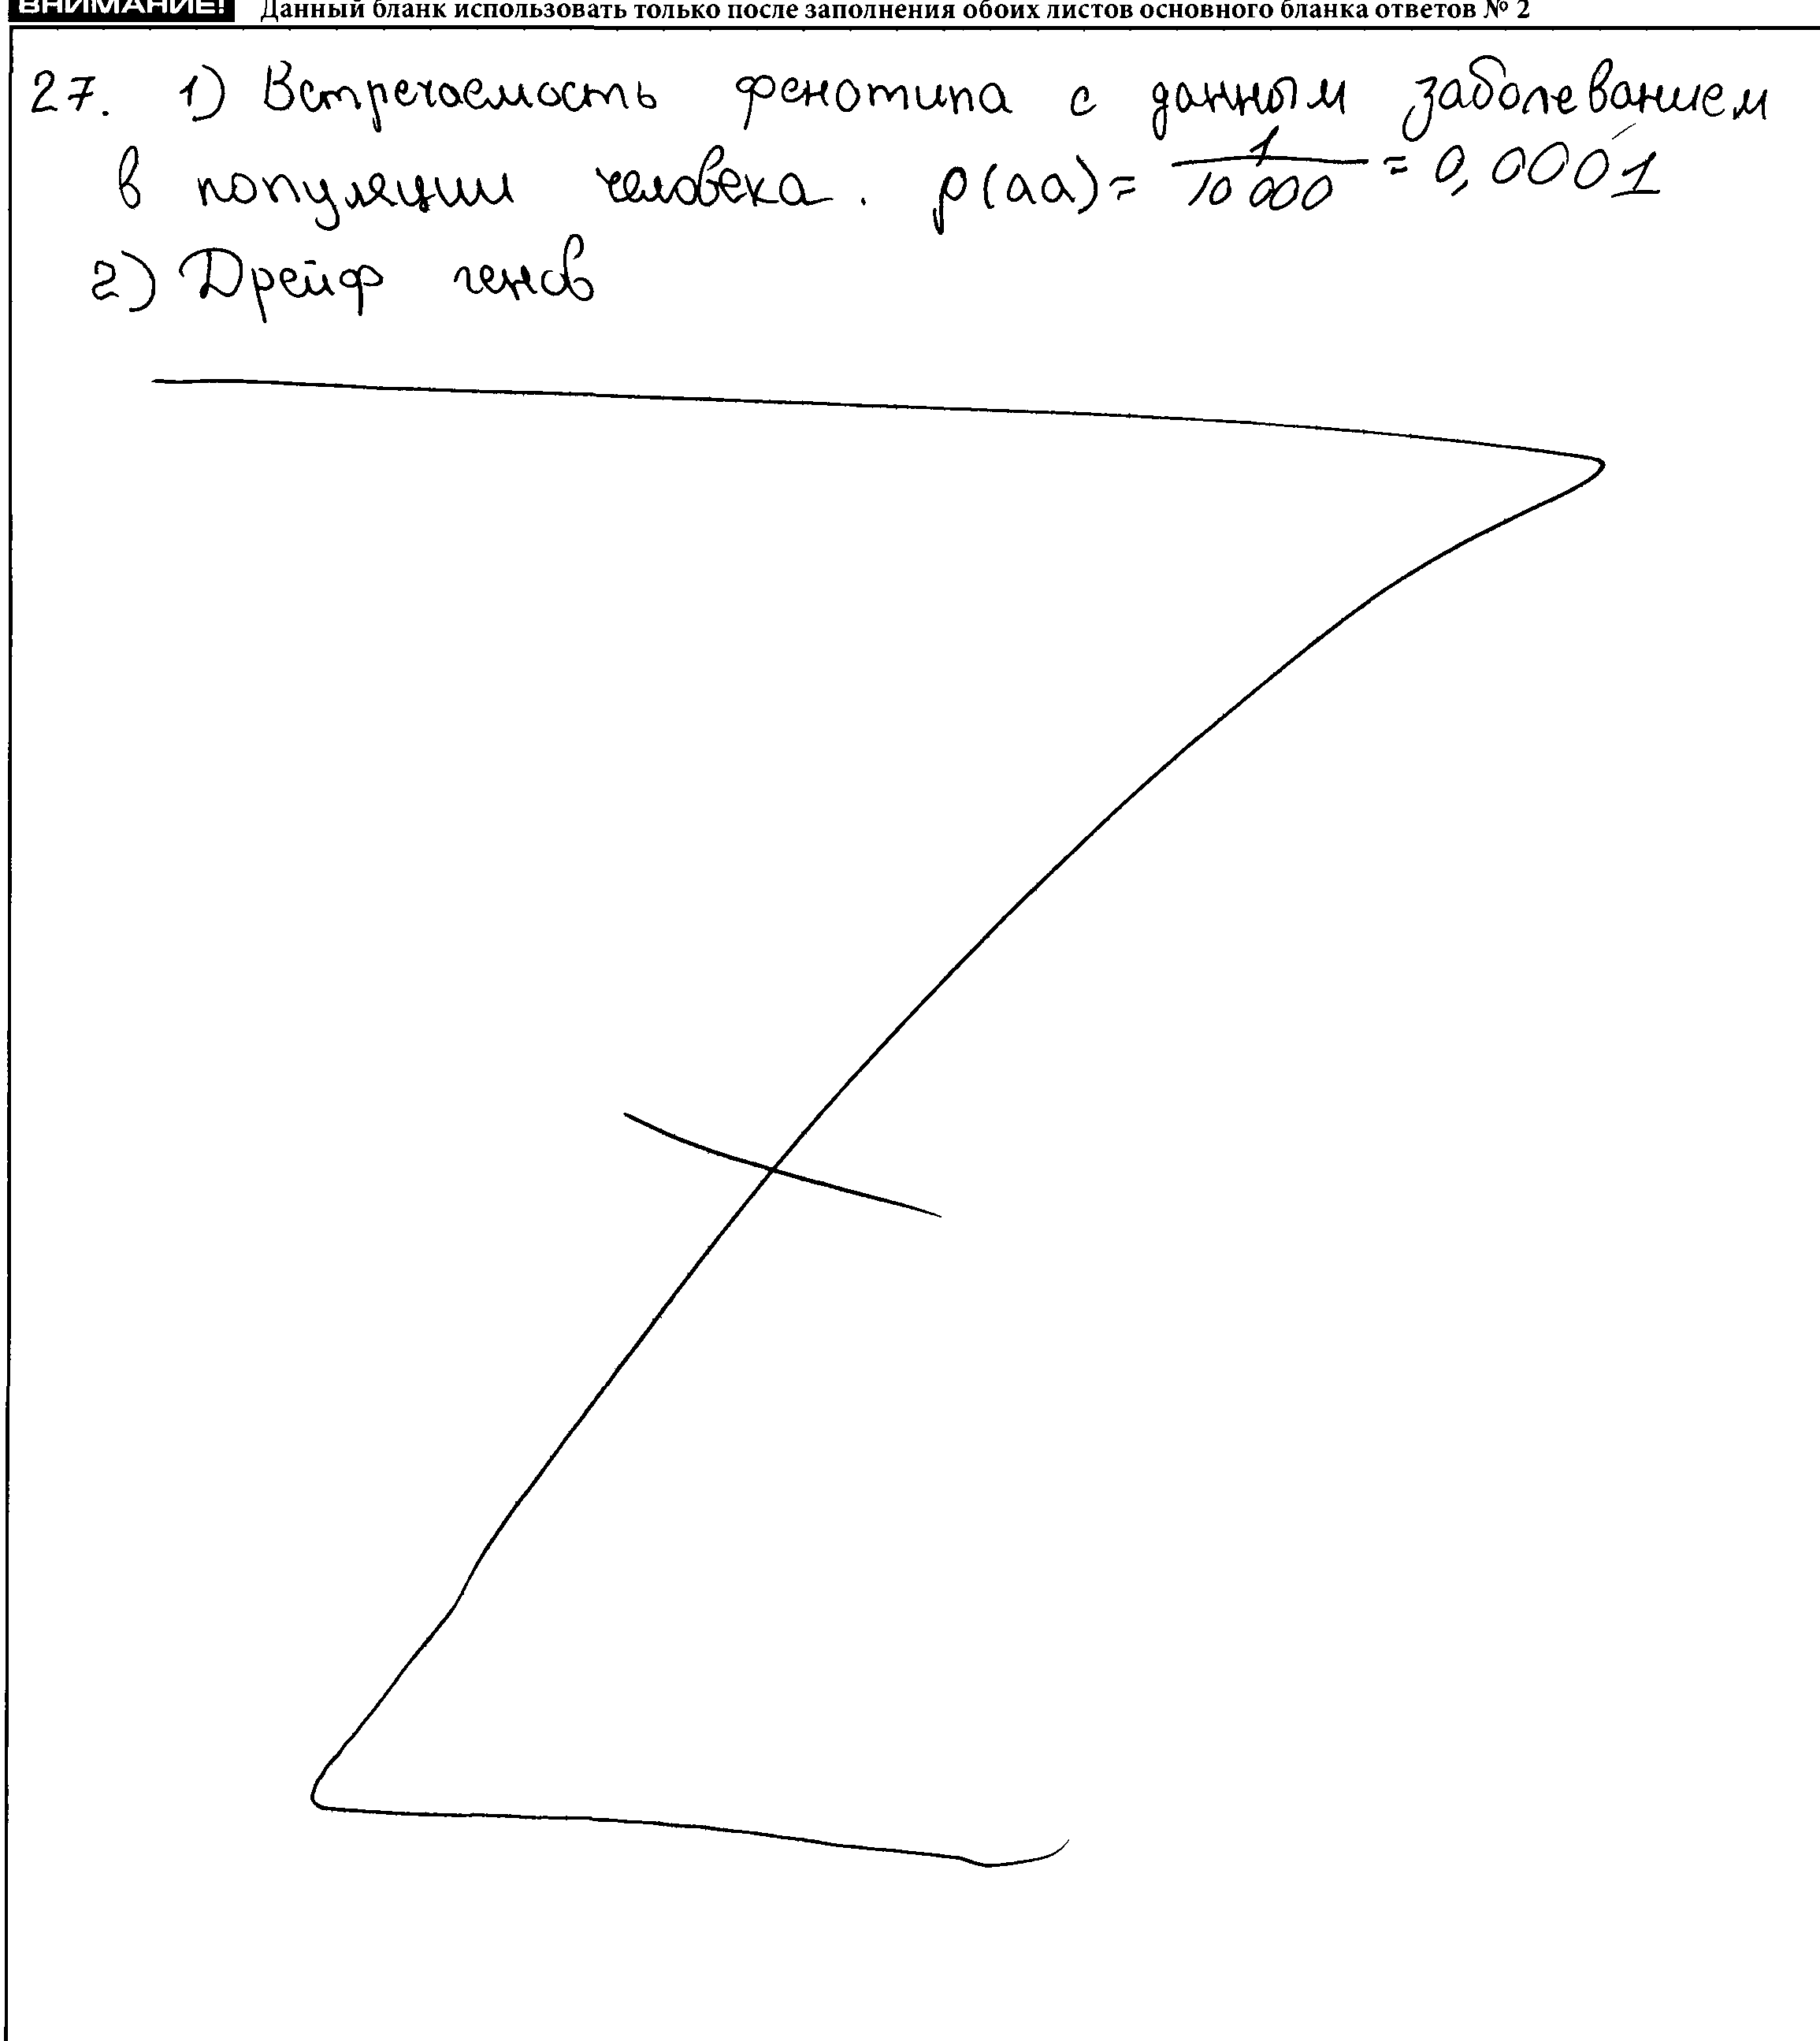 ВНИМАНИЕ! Данный бланк использовать только после заполнения обоих листов основного бланка ответов № 2
27. 1) Встречаемость фенотипа с данным заболеванием
в популяции человека. p(aa) = 1/10 000 = 0,0001
2) Дрейф генов